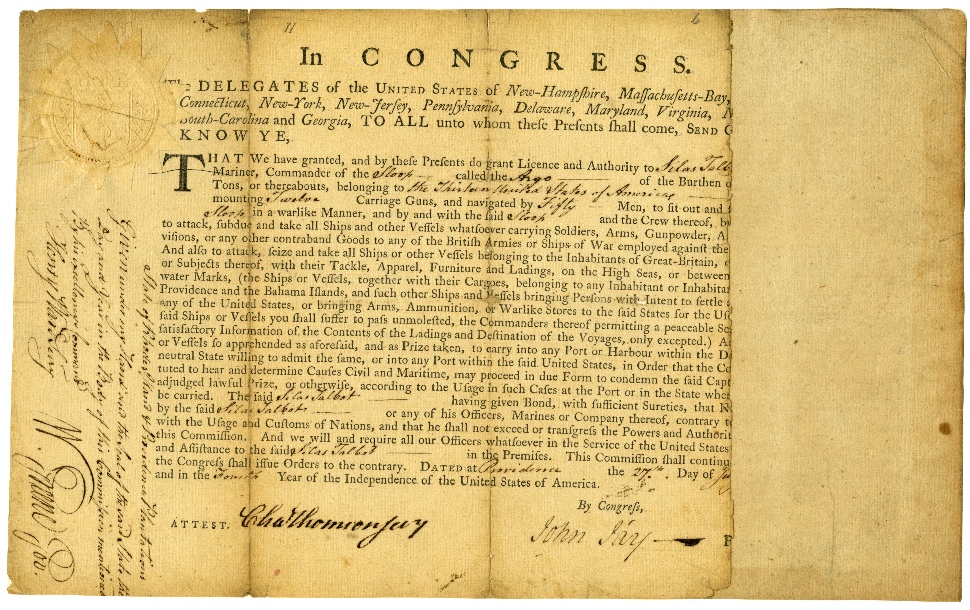 In CONGRESS.
DELEGATES of the UNITED STATES of New-Hampſhire, Maſſachuſetts-Bay,
Connecticut, New-York, New-Jerſey, Pennſylvania, Delaware, Maryland, Virginia, N
South-Carolina and Georgia, TO ALL unto whom theſe Preſents ſhall come, SEND G
KNOW YE,
THAT We have granted, and by theſe Preſents do grant Licence and Authority to Silas Talb
Mariner, Commander of the Sloop called the Argo of the Burthen o
Tons, or thereabouts, belonging to the Thirteen United States of America
mounting Twelve Carriage Guns, and navigated by Fifty Men, to fit out and ſ
Sloop in a warlike Manner, and by and with the ſaid Sloop and the Crew thereof, by
to attack, ſubdue and take all Ships and other Veſſels whatſoever carrying Soldiers, Arms, Gunpowder, A
viſions, or any other contraband Goods to any of the Britiſh Armies or Ships of War employed againſt the
And alſo to attack, ſeize and take all Ships or other Veſſels belonging to the Inhabitants of Great-Britain,
or Subjects thereof, with their Tackle, Apparel, Furniture and Ladings, on the High Seas, or between
water Marks, (the Ships or Veſſels, together with their Cargoes, belonging to any Inhabitant or Inhabitan
Providence and the Bahama Iſlands, and ſuch other Ships and Veſſels bringing Perſons with Intent to ſettle
any of the United States, or bringing Arms, Ammunition, or Warlike Stores to the ſaid States for the Uſ
ſaid Ships or Veſſels you ſhall ſuffer to paſs unmoleſted, the Commanders thereof permitting a peaceable Se
ſatisfactory Information of the Contents of the Ladings and Deſtination of the Voyages, only excepted.) A
or Veſſels ſo apprehended as aforeſaid, and as Prize taken, to carry into any Port or Harbour within the D
neutral State willing to admit the ſame, or into any Port within the ſaid United States, in Order that the Co
tuted to hear and determine Cauſes Civil and Maritime, may proceed in due Form to condemn the ſaid Capt
adjudged lawful Prize, or otherwiſe, according to the Uſage in ſuch Caſes at the Port or in the State wher
be carried. The ſaid Silas Talbot having given Bond, with ſufficient Sureties, that N
by the ſaid Silas Talbot or any of his Officers, Marines or Company thereof, contrary t
with the Uſage and Cuſtoms of Nations, and that he ſhall not exceed or tranſgreſs the Powers and Authorit
this Commiſſion. And we will and require all our Officers whatſoever in the Service of the United States
and Aſſiſtance to the ſaid Silas Talbot in the Premiſes. This Commiſſion ſhall contin
the Congreſs ſhall iſſue Orders to the contrary. DATED at Providence the 27th. Day of Ju
and in the Fourth Year of the Independence of the United States of America.
By Congreſs,
ATTEST. Cha Thomson Secy John Jay P
State of Rhode Island & Providence Plantations
Given under my Hand and the Seal of the said State the
Day and Year in the Body of this Commission mentioned
By his Excellency's Command
Henry Ward Secy
W. Greene Gov.